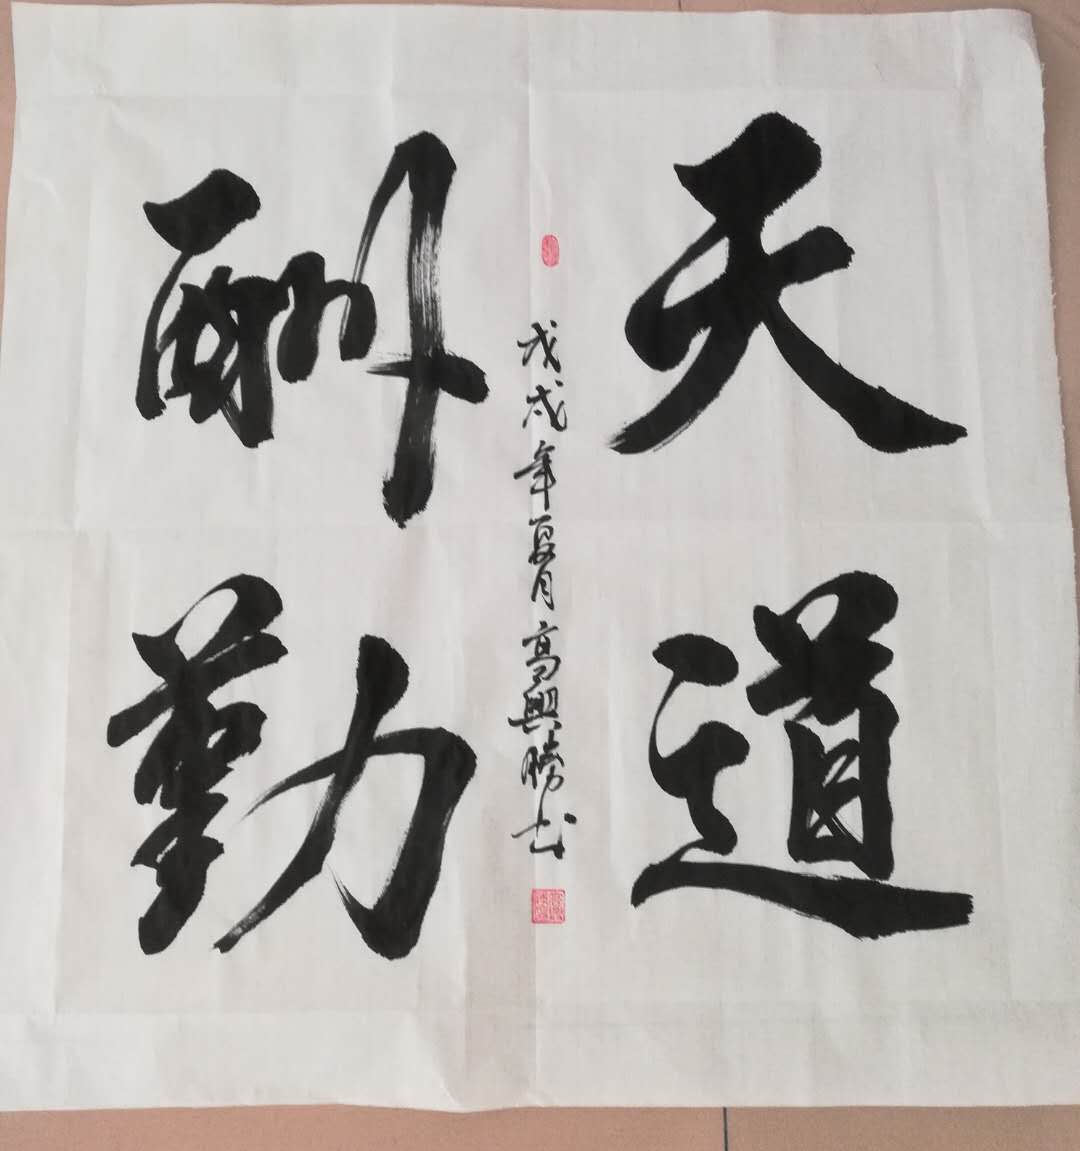 天道
酬勤
戊戌年夏月高興勝书